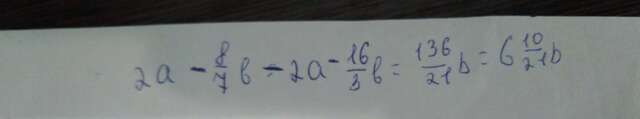 2a - 8/7 b - 2a - 16/3 b = 136/21 b = 6 10/21 b